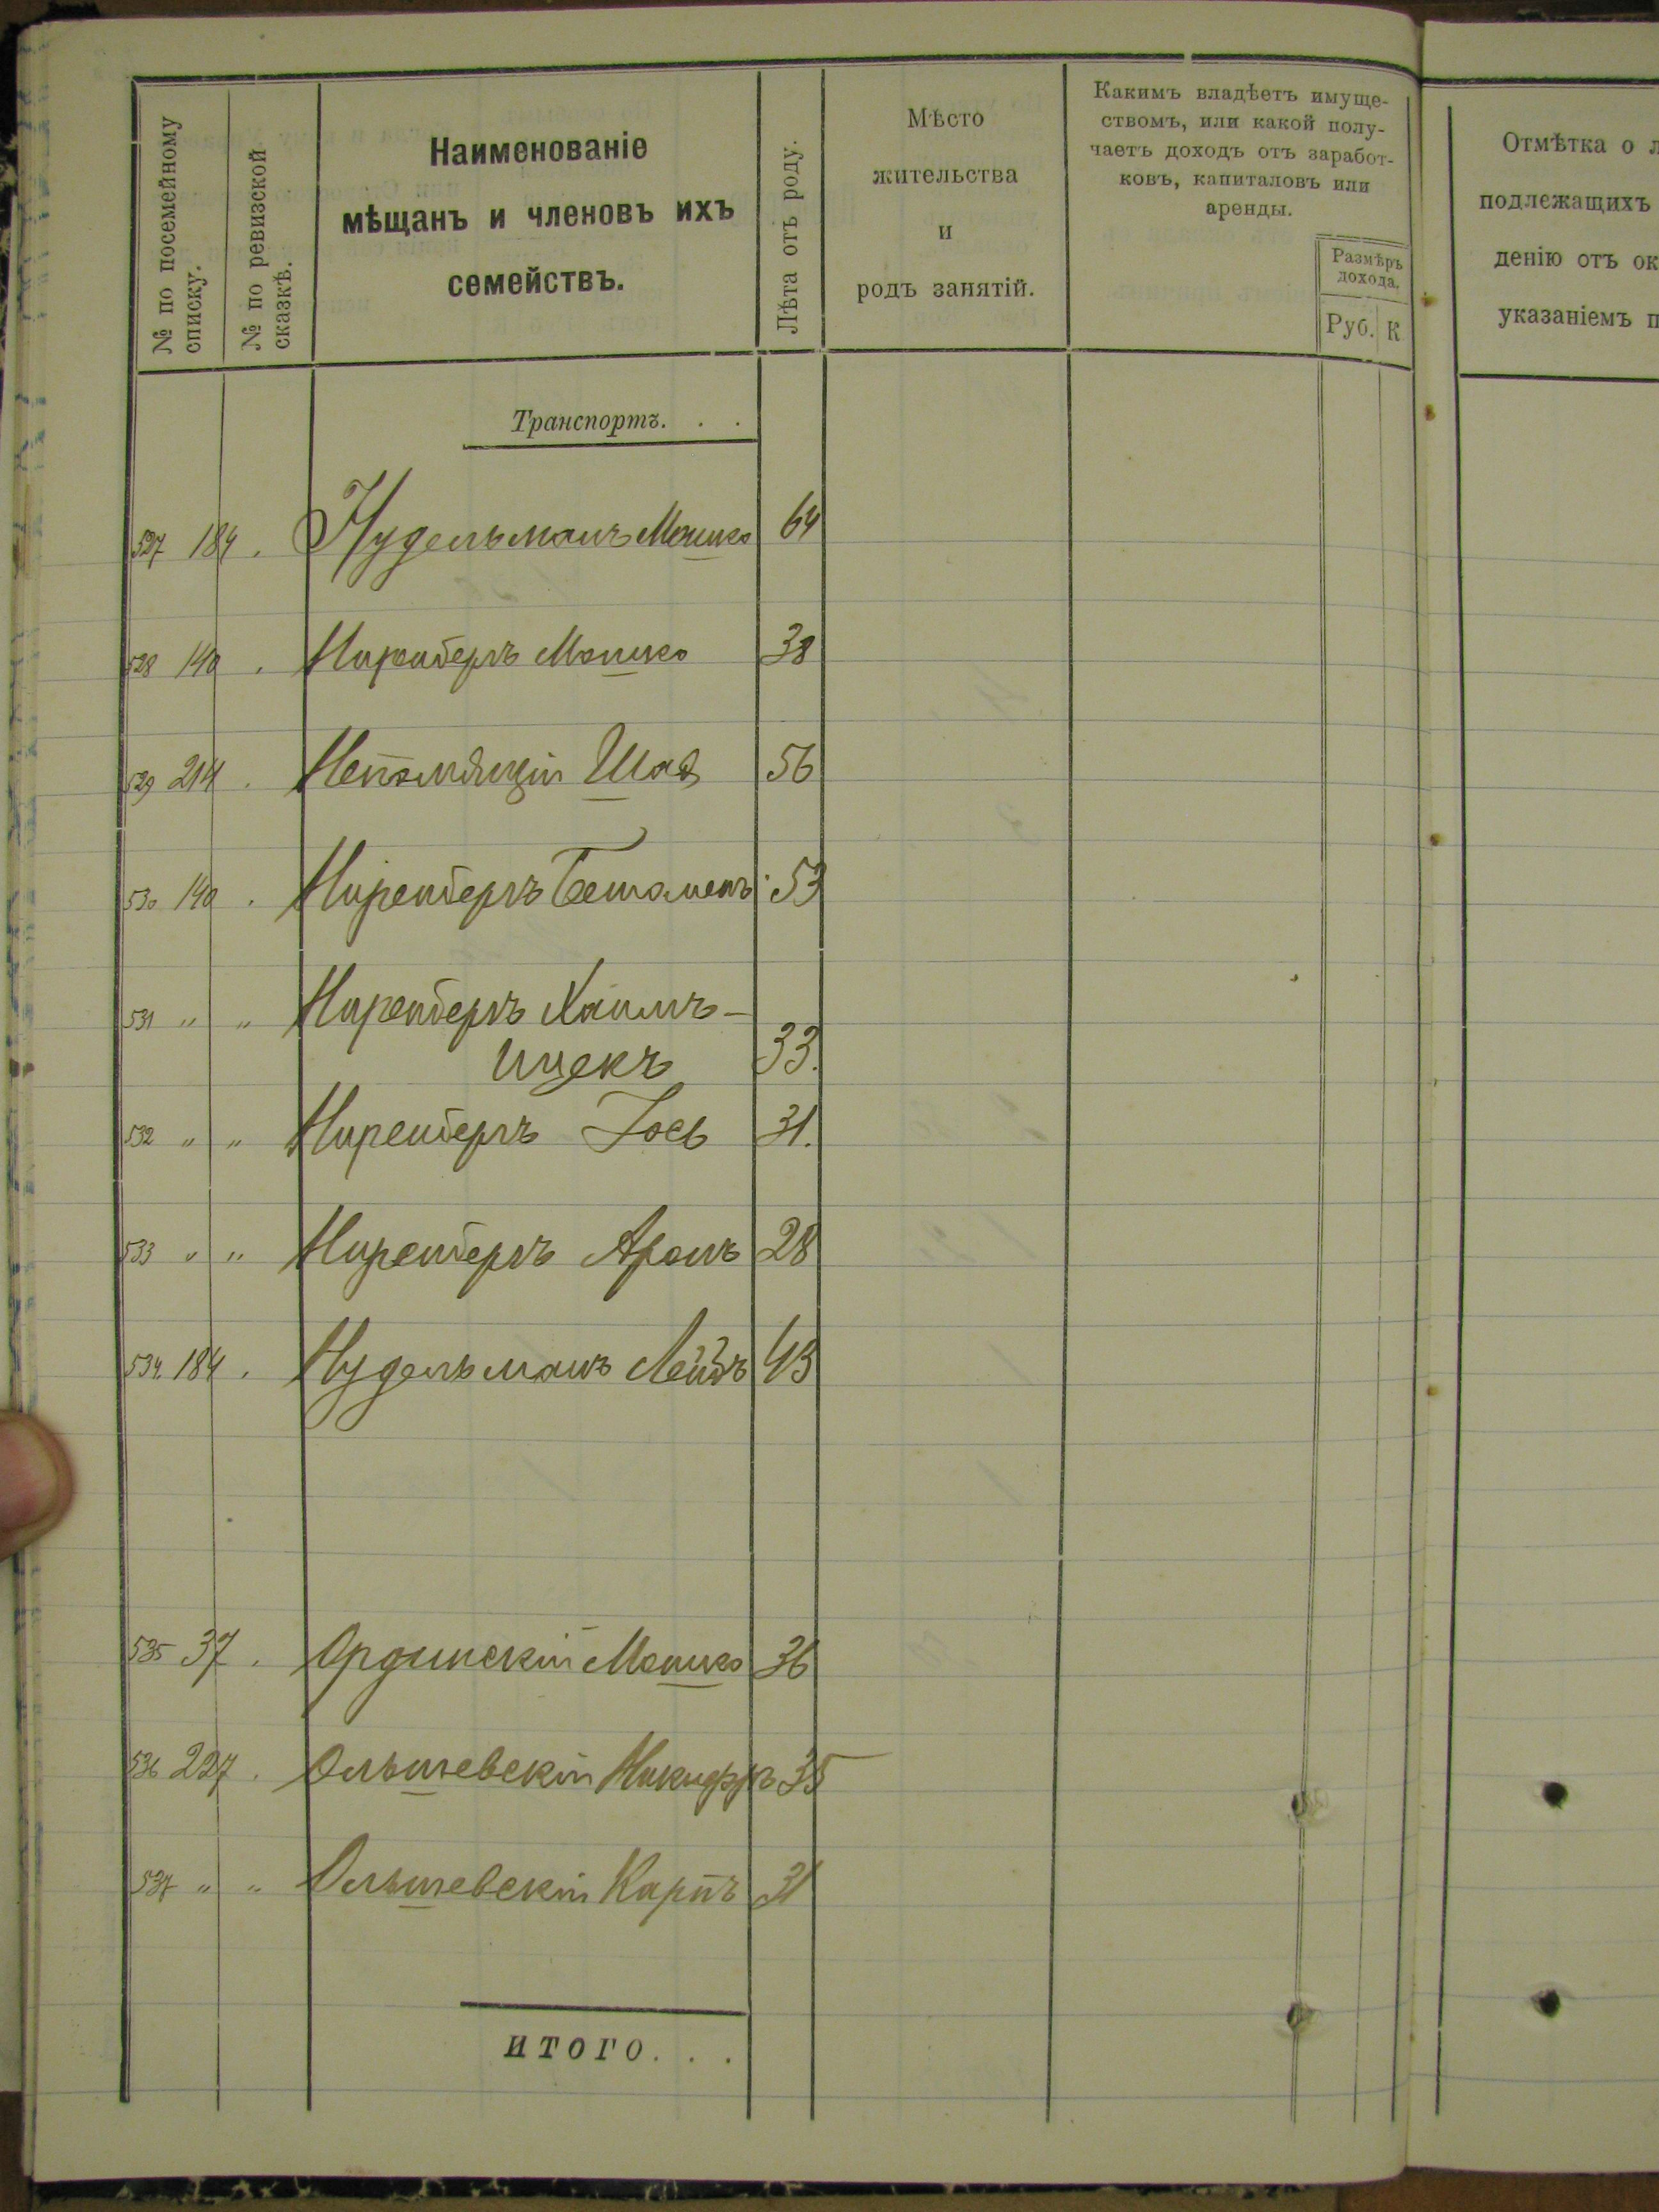 № по посемейному
списку.
№ по ревизской
сказкѣ.
Наименованіе
мѣщанъ и членовъ ихъ
семействъ.
Лѣта отъ роду.
Мѣсто
жительства
и
родъ занятій.
Какимъ владѣетъ имуще-
ствомъ, или какой полу-
чаетъ доходъ отъ заработ-
ковъ, капиталовъ или
аренды.
Размѣръ
дохода.
Руб. К
Отмѣтка о л
подлежащихъ
денію отъ ок
указаніемъ п
Транспортъ. . .
527 184. Нудельманъ Мошко 64
528 140. Ниренберъ Мошко 38
529 214. Непомнящій Шая 56
530 140. Ниренбергъ 53
531 " " Ниренбергъ Хаимъ-
Ицекъ 33.
532 " " Ниренбергъ Іось 31.
533 " " Ниренбергъ Аронъ 28
534 184. Нудельманъ Лейбъ 43
535 37. Ординскій Мошко 36
536 227. Ольшевскій Никифръ 35
537 " " Ольшевскій Карпъ 31
итого. . .